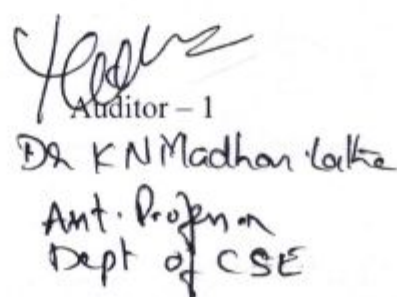 Auditor – 1
Dr K N Madhavi Latha
Asst. Professor
Dept of CSE